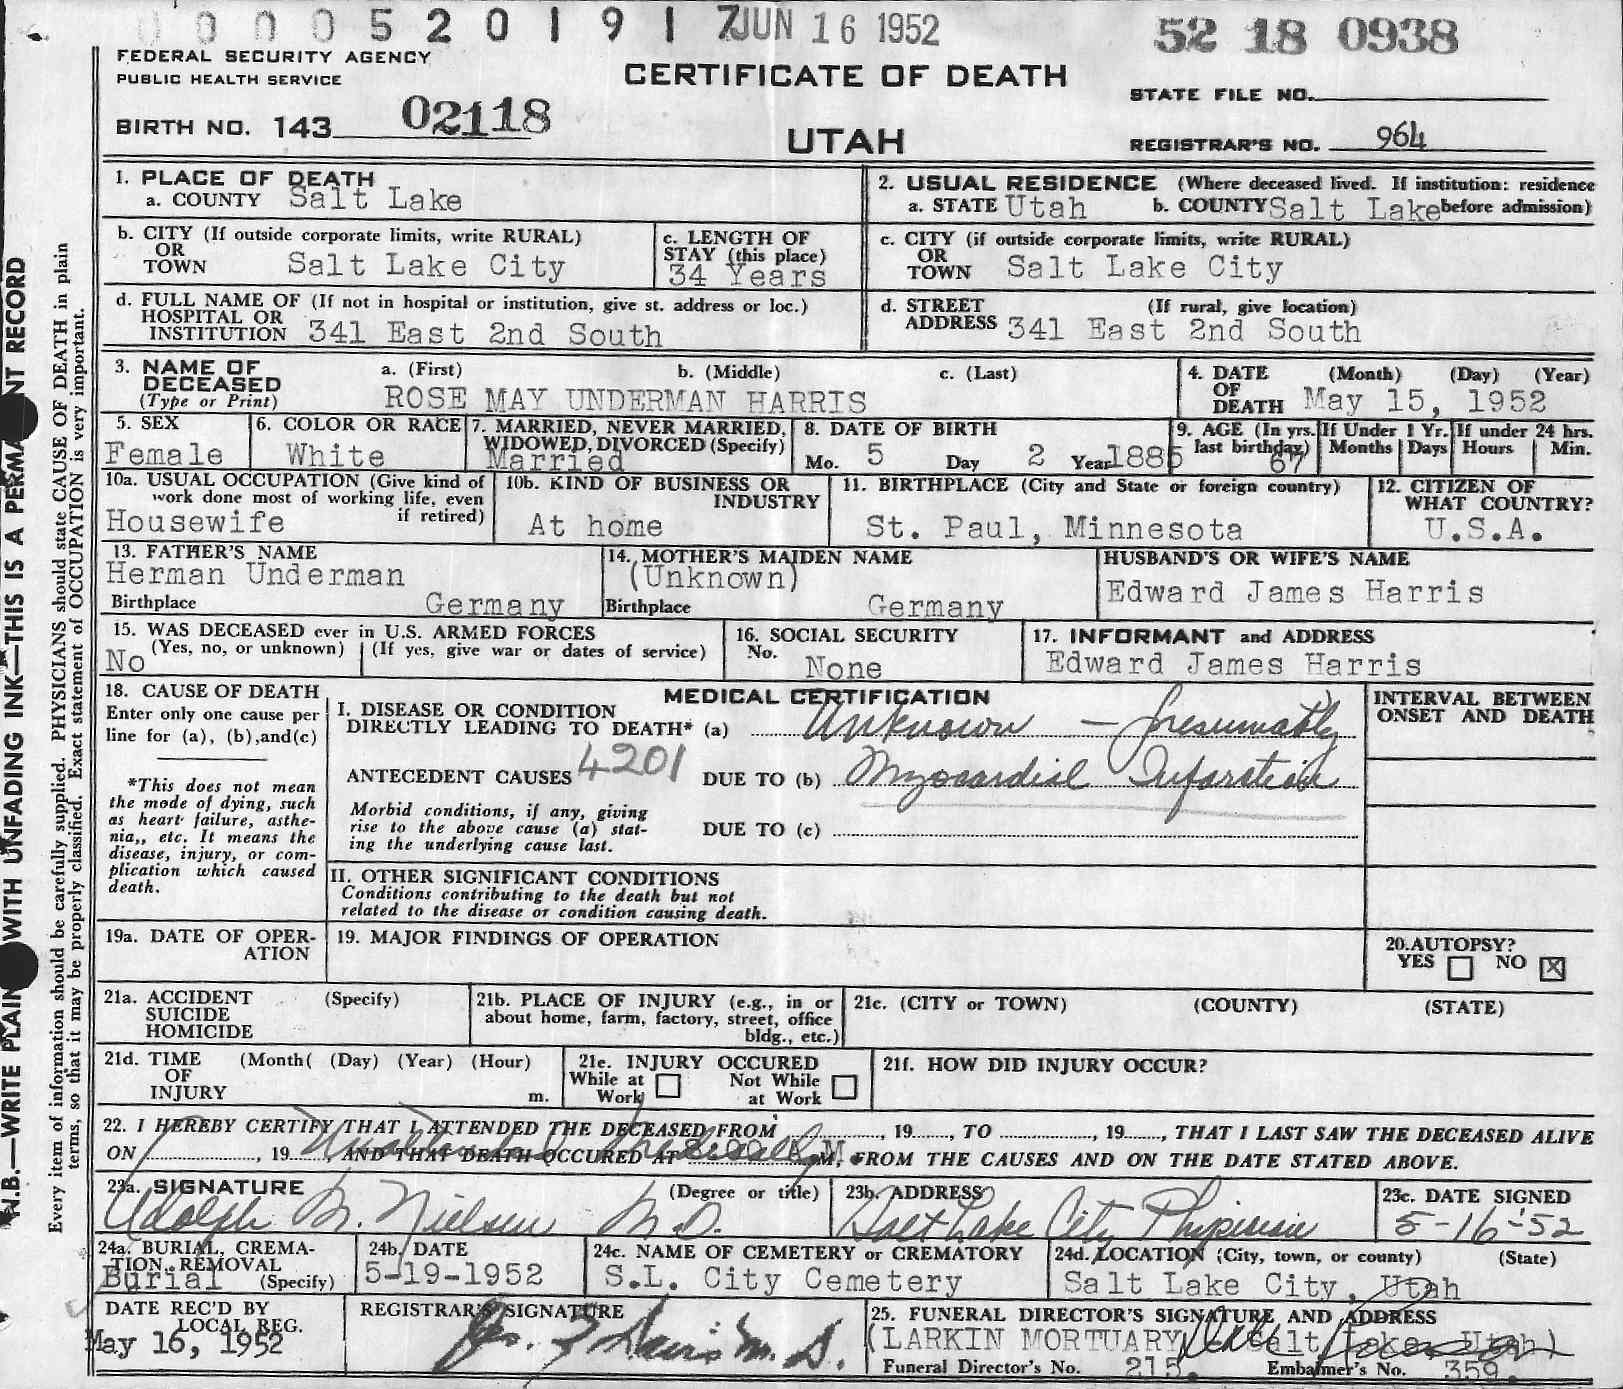 0 0 0 5 2 0 1 9 1 7 JUN 16 1952 52 18 0938
FEDERAL SECURITY AGENCY
PUBLIC HEALTH SERVICE
CERTIFICATE OF DEATH
STATE FILE NO.
BIRTH NO. 143 02118
UTAH
REGISTRAR'S NO. 964
1. PLACE OF DEATH
a. COUNTY Salt Lake
2. USUAL RESIDENCE (Where deceased lived. If institution: residence
a. STATE Utah b. COUNTY Salt Lake before admission)
b. CITY (If outside corporate limits, write RURAL)
OR
TOWN Salt Lake City
c. LENGTH OF
STAY (this place)
34 Years
c. CITY (if outside corporate limits, write RURAL)
OR
TOWN Salt Lake City
d. FULL NAME OF (If not in hospital or institution, give st. address or loc.)
HOSPITAL OR
INSTITUTION 341 East 2nd South
d. STREET (If rural, give location)
ADDRESS 341 East 2nd South
3. NAME OF a. (First) b. (Middle) c. (Last)
DECEASED
(Type or Print) ROSE MAY UNDERMAN HARRIS
4. DATE (Month) (Day) (Year)
OF
DEATH May 15, 1952
5. SEX
Female
6. COLOR OR RACE
White
7. MARRIED, NEVER MARRIED,
WIDOWED, DIVORCED (Specify)
Married
8. DATE OF BIRTH
Mo. 5 Day 2 Year 1885
9. AGE (In yrs.
last birthday)
67
If Under 1 Yr.
Months Days
If under 24 hrs.
Hours Min.
10a. USUAL OCCUPATION (Give kind of
work done most of working life, even
if retired)
Housewife
10b. KIND OF BUSINESS OR
INDUSTRY
At home
11. BIRTHPLACE (City and State or foreign country)
St. Paul, Minnesota
12. CITIZEN OF
WHAT COUNTRY?
U.S.A.
13. FATHER'S NAME
Herman Underman
Birthplace Germany
14. MOTHER'S MAIDEN NAME
(Unknown)
Birthplace Germany
HUSBAND'S OR WIFE'S NAME
Edward James Harris
15. WAS DECEASED ever in U.S. ARMED FORCES
(Yes, no, or unknown) (If yes, give war or dates of service)
No
16. SOCIAL SECURITY
No. None
17. INFORMANT and ADDRESS
Edward James Harris
18. CAUSE OF DEATH
Enter only one cause per
line for (a), (b),and(c)
*This does not mean
the mode of dying, such
as heart failure, asthe-
nia,, etc. It means the
disease, injury, or com-
plication which caused
death.
MEDICAL CERTIFICATION
I. DISEASE OR CONDITION
DIRECTLY LEADING TO DEATH* (a) Unknown — Presumably
ANTECEDENT CAUSES 4201 DUE TO (b) Myocardial Infarction
Morbid conditions, if any, giving
rise to the above cause (a) stat-
ing the underlying cause last.
DUE TO (c)
INTERVAL BETWEEN
ONSET AND DEATH
II. OTHER SIGNIFICANT CONDITIONS
Conditions contributing to the death but not
related to the disease or condition causing death.
19a. DATE OF OPER-
ATION
19. MAJOR FINDINGS OF OPERATION
20. AUTOPSY?
YES NO
21a. ACCIDENT (Specify)
SUICIDE
HOMICIDE
21b. PLACE OF INJURY (e.g., in or
about home, farm, factory, street, office
bldg., etc.)
21c. (CITY or TOWN) (COUNTY) (STATE)
21d. TIME (Month( (Day) (Year) (Hour)
OF
INJURY m.
21e. INJURY OCCURED
While at Work
Not While at Work
21f. HOW DID INJURY OCCUR?
22. I HEREBY CERTIFY THAT I ATTENDED THE DECEASED FROM , 19 , TO , 19 , THAT I LAST SAW THE DECEASED ALIVE
ON , 19 , AND THAT DEATH OCCURED AT M., FROM THE CAUSES AND ON THE DATE STATED ABOVE.
23a. SIGNATURE (Degree or title)
Adolph M. Nielsen M.D.
23b. ADDRESS
Salt Lake City Physician
23c. DATE SIGNED
5-16-52
24a. BURIAL, CREMA-
TION, REMOVAL
Burial (Specify)
24b. DATE
5-19-1952
24c. NAME OF CEMETERY or CREMATORY
S.L. City Cemetery
24d. LOCATION (City, town, or county) (State)
Salt Lake City, Utah
DATE REC'D BY
LOCAL REG.
May 16, 1952
REGISTRAR'S SIGNATURE
25. FUNERAL DIRECTOR'S SIGNATURE AND ADDRESS
(LARKIN MORTUARY Salt Lake, Utah)
Funeral Director's No. 215. Embalmer's No. 359.
N.B.—WRITE PLAIN WITH UNFADING INK—THIS IS A PERMA NT RECORD
Every item of information should be carefully supplied. PHYSICIANS should state CAUSE OF DEATH in plain
terms, so that it may be properly classified. Exact statement of OCCUPATION is very important.